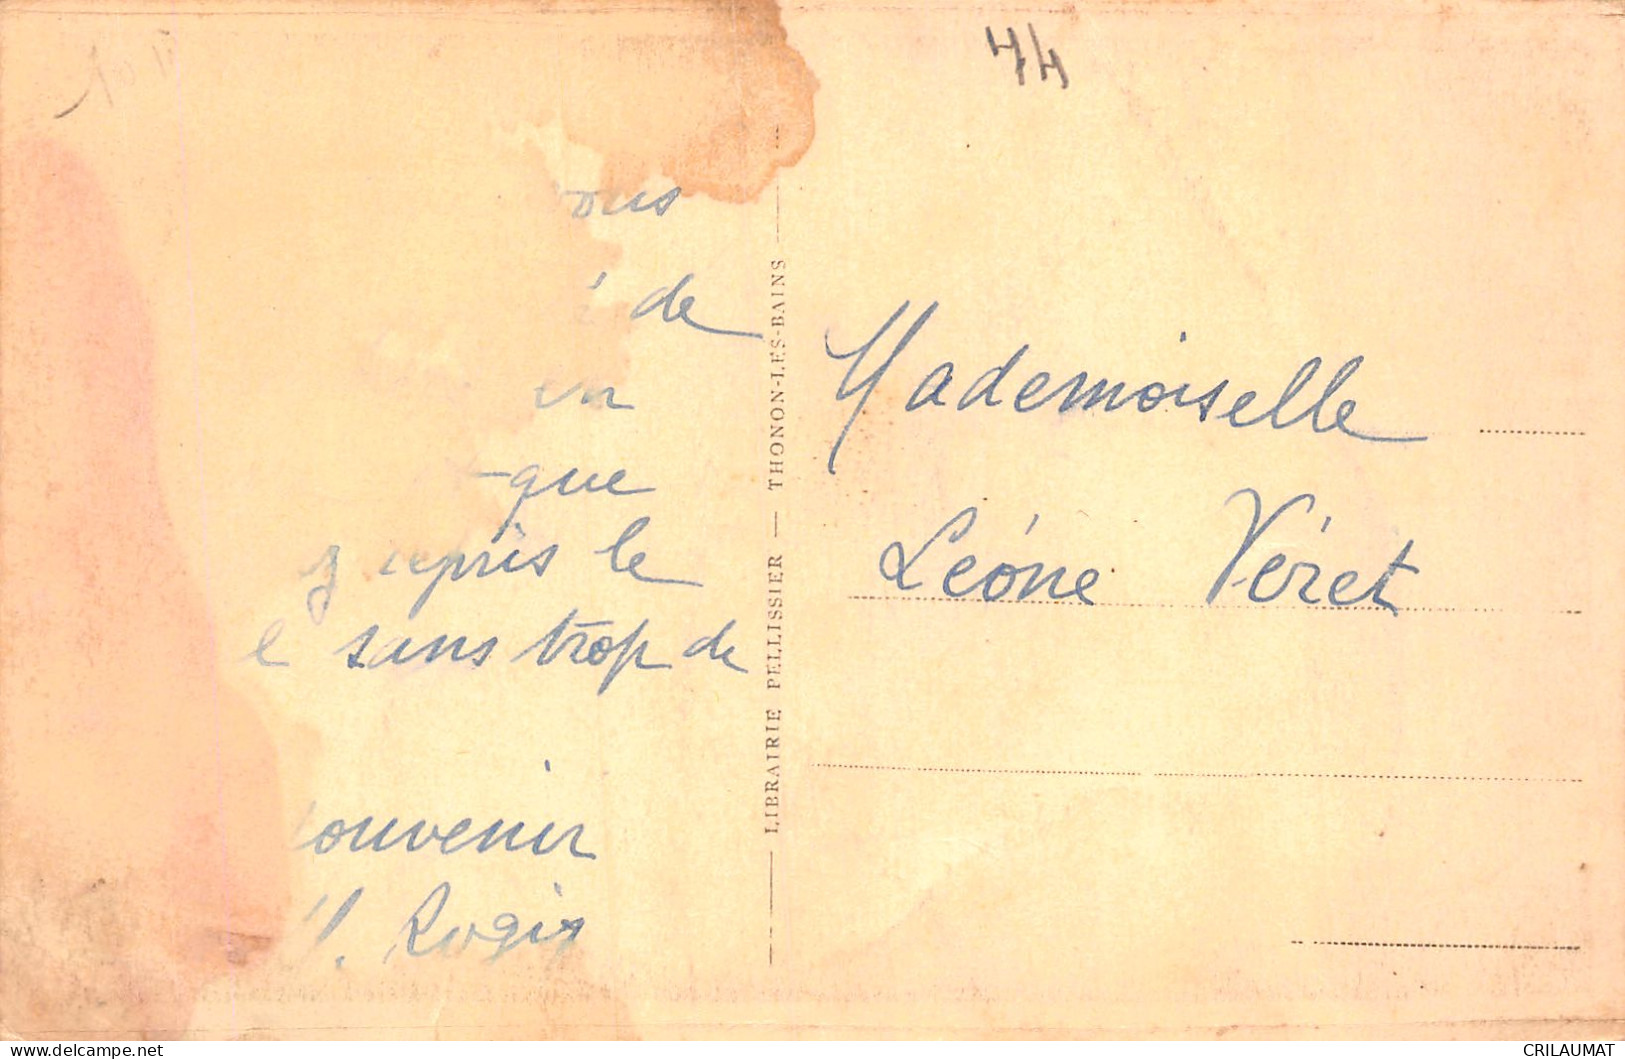 74
ous
é de
en
-que
repris le
e sans trop de
ouvenir
M. Rogir
LIBRAIRIE PELLISSIER — THONON-LES-BAINS
Mademoiselle
Léone Véret
delcampe.net
CRILAUMAT